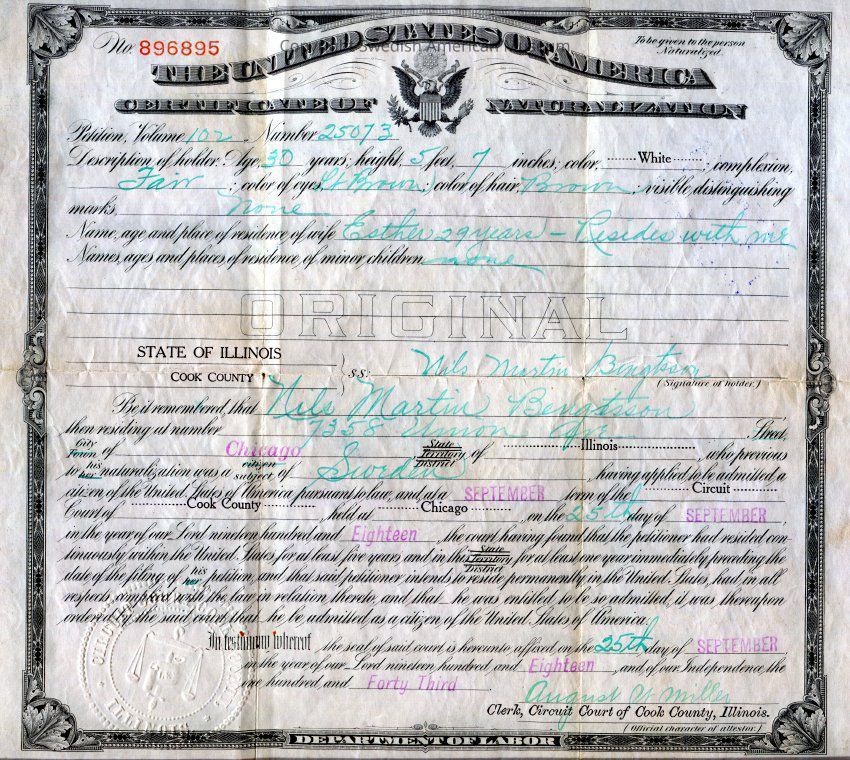 No. 896895
To be given to the person
Naturalized.
Swedish American
THE UNITED STATES OF AMERICA
CERTIFICATE OF NATURALIZATION
Petition, Volume 102, Number 25073
Description of holder: Age, 30 years; height, 5 feet, 7 inches; color, White; complexion,
Fair; color of eyes, Lt Brown; color of hair, Brown; visible distinguishing
marks, none
Name, age and place of residence of wife Esther 29 years - Resides with me
Names, ages and places of residence of minor children none
ORIGINAL
STATE OF ILLINOIS
COOK COUNTY, ss:
Nils Martin Bengtsson
(Signature of holder.)
Be it remembered, that Nils Martin Bengtsson
then residing at number 7358 Union Ave Street,
City Town of Chicago State Territory District of Illinois, who previous
to his her naturalization was a citizen subject of Sweden, having applied to be admitted a
citizen of the United States of America pursuant to law, and at a SEPTEMBER term of the Circuit
Court of Cook County, held at Chicago, on the 25th day of SEPTEMBER,
in the year of our Lord nineteen hundred and Eighteen, the court having found that the petitioner had resided con-
tinuously within the United States for at least five years and in this State Territory District for at least one year immediately preceding the
date of the filing of his her petition, and that said petitioner intends to reside permanently in the United States, had in all
respects complied with the law in relation thereto, and that he was entitled to be so admitted, it was thereupon
ordered by the said court that he be admitted as a citizen of the United States of America.
In testimony whereof the seal of said court is hereunto affixed on the 25th day of SEPTEMBER
in the year of our Lord nineteen hundred, and Eighteen, and of our Independence the
one hundred, and Forty Third.
August W Miller
Clerk, Circuit Court of Cook County, Illinois.
(Official character of attestor.)
ILLINOIS
DEPARTMENT OF LABOR